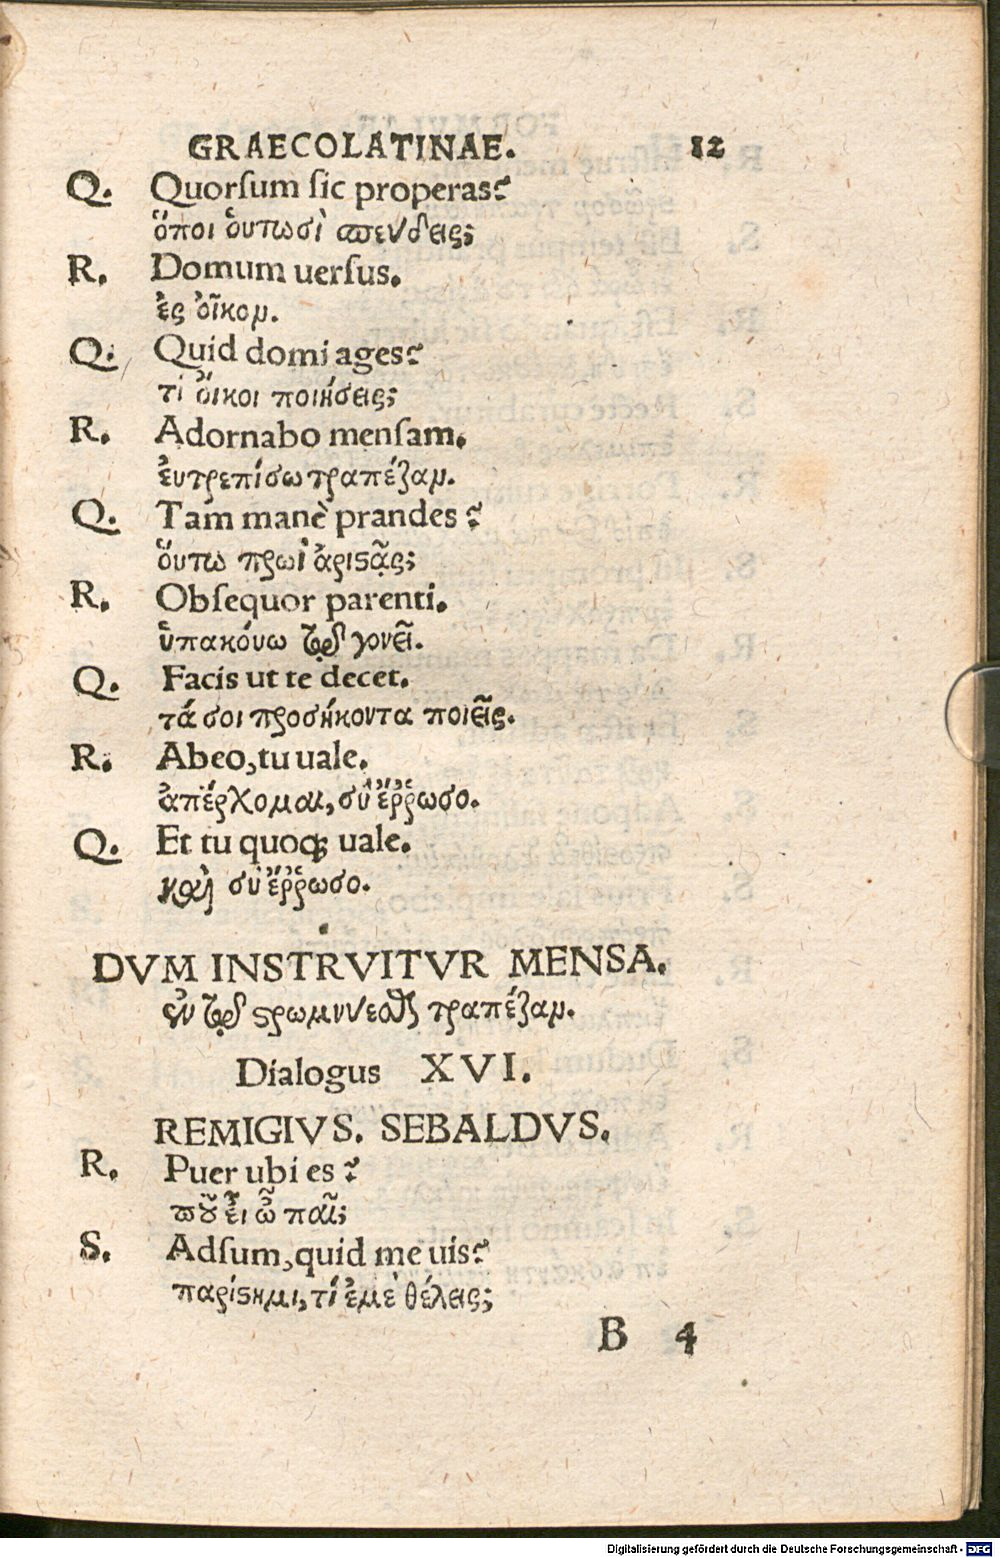 GRAECOLATINAE. 12
Q. Quorſum ſic properas?
ὅποι οὑτωσὶ σπεύδεις;
R. Domum uerſus.
ἐς οἶκον.
Q. Quid domi ages?
τί οἴκοι ποιήσεις;
R. Adornabo menſam.
ἐυτρεπίσω τράπέζαν.
Q. Tam manè prandes?
ὅυτω πρωὶ ἀριϛᾷς;
R. Obſequor parenti.
ὑπακόυω τῷ γονεῖ.
Q. Facis ut te decet.
τά σοι προσήκοντα ποιεῖς.
R. Abeo, tu uale.
ἀπέρχομαι, σὺ ἔῤῥωσο.
Q. Et tu quoq; uale.
καὶ σὺ ἔῤῥωσο.
DVM INSTRVITVR MENSA.
ἐν τῷ ϛρωμνύεσθαι τραπέζαν.
Dialogus XVI.
REMIGIVS. SEBALDVS.
R. Puer ubi es?
ποῦ ἔι ὦ παῖ;
S. Adſum, quid me uis?
παρίϛημι, τί ἐμὲ θέλεις;
B 4
Digitalisierung gefördert durch die Deutsche Forschungsgemeinschaft - DFG